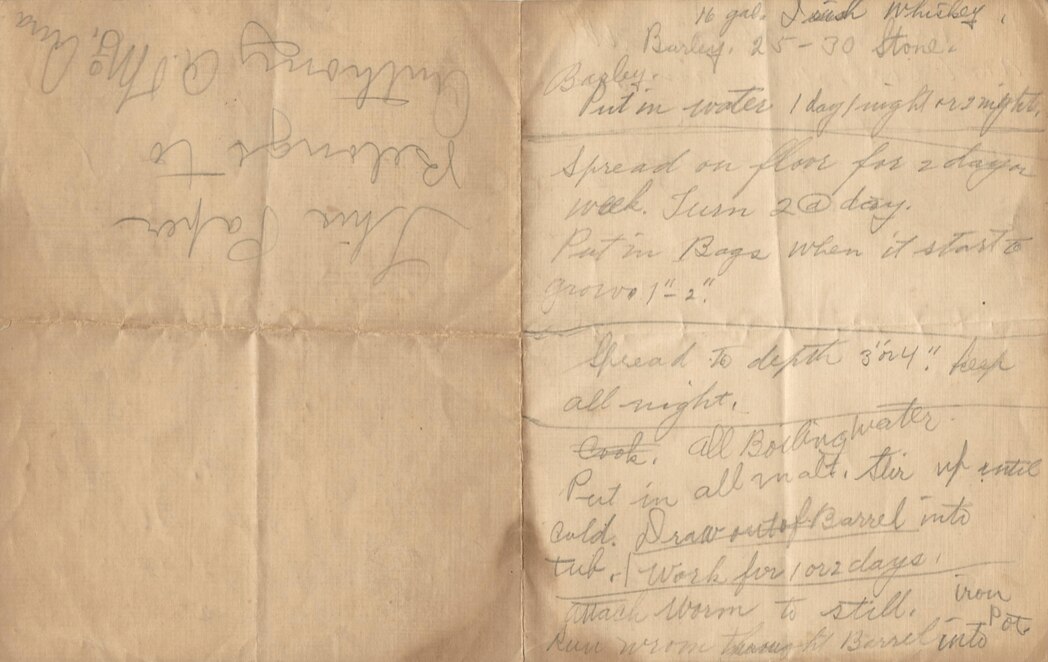 This Paper
Belongs to
Anthony A. Mc
16 gal. Irish Whiskey.
Barley. 25-30 Stone.
Barley.
Put in water 1 day 1 night or 2 night.
Spread on floor for 2 day or
week. Turn 2 @ day.
Put in Bags when it start to
grows 1"-2".
Spread to depth 3" or 4". keep
all night.
Cook. all Boiling water.
Put in all malt. Stir up until
cold. Draw out of Barrel into
tub. Work for 1 or 2 days.
attach Worm to still. iron
Pot.
Run wrom throught Barrel into